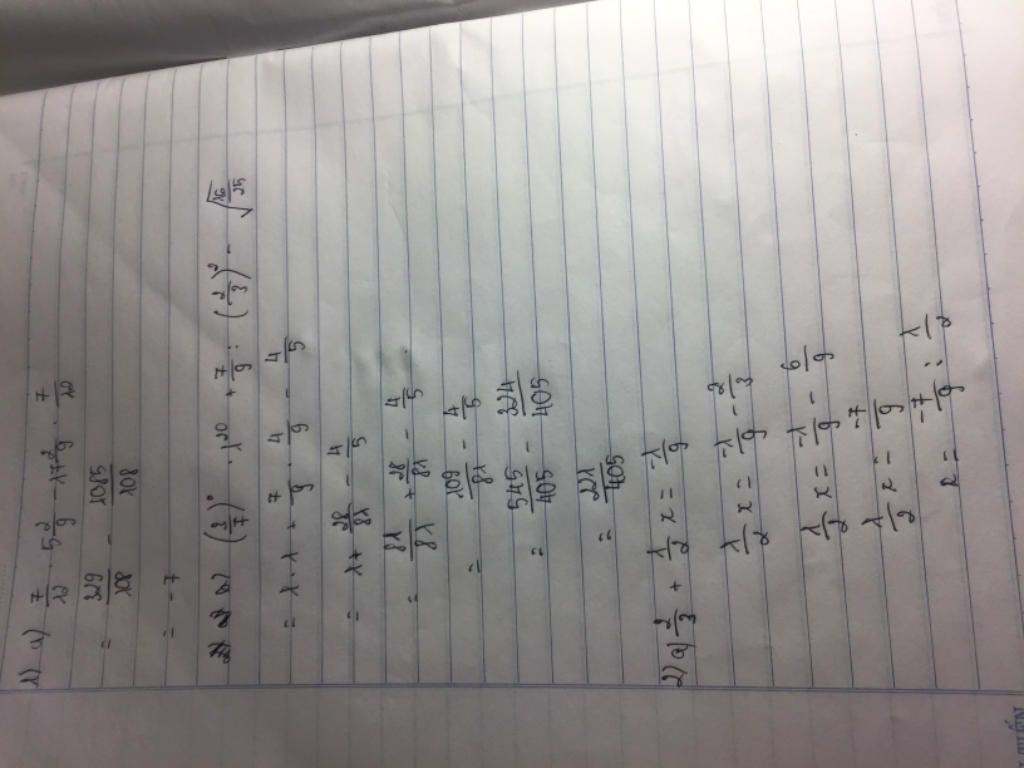 1) a) 7/12 . 5 2/9 - 17 2/9 . 7/12
= 329/108 - 1085/108
= -7
b) (2/7)⁰ . 1²⁰ + 7/9 : (2/3)² - √(16/25)
= 1 . 1 + 7/9 . 4/9 - 4/5
= 1 + 28/81 - 4/5
= 81/81 + 28/81 - 4/5
= 109/81 - 4/5
= 545/405 - 324/405
= 221/405
2) a) 2/3 + 1/2 x = -1/9
1/2 x = -1/9 - 2/3
1/2 x = -1/9 - 6/9
1/2 x = -7/9
x = -7/9 : 1/2